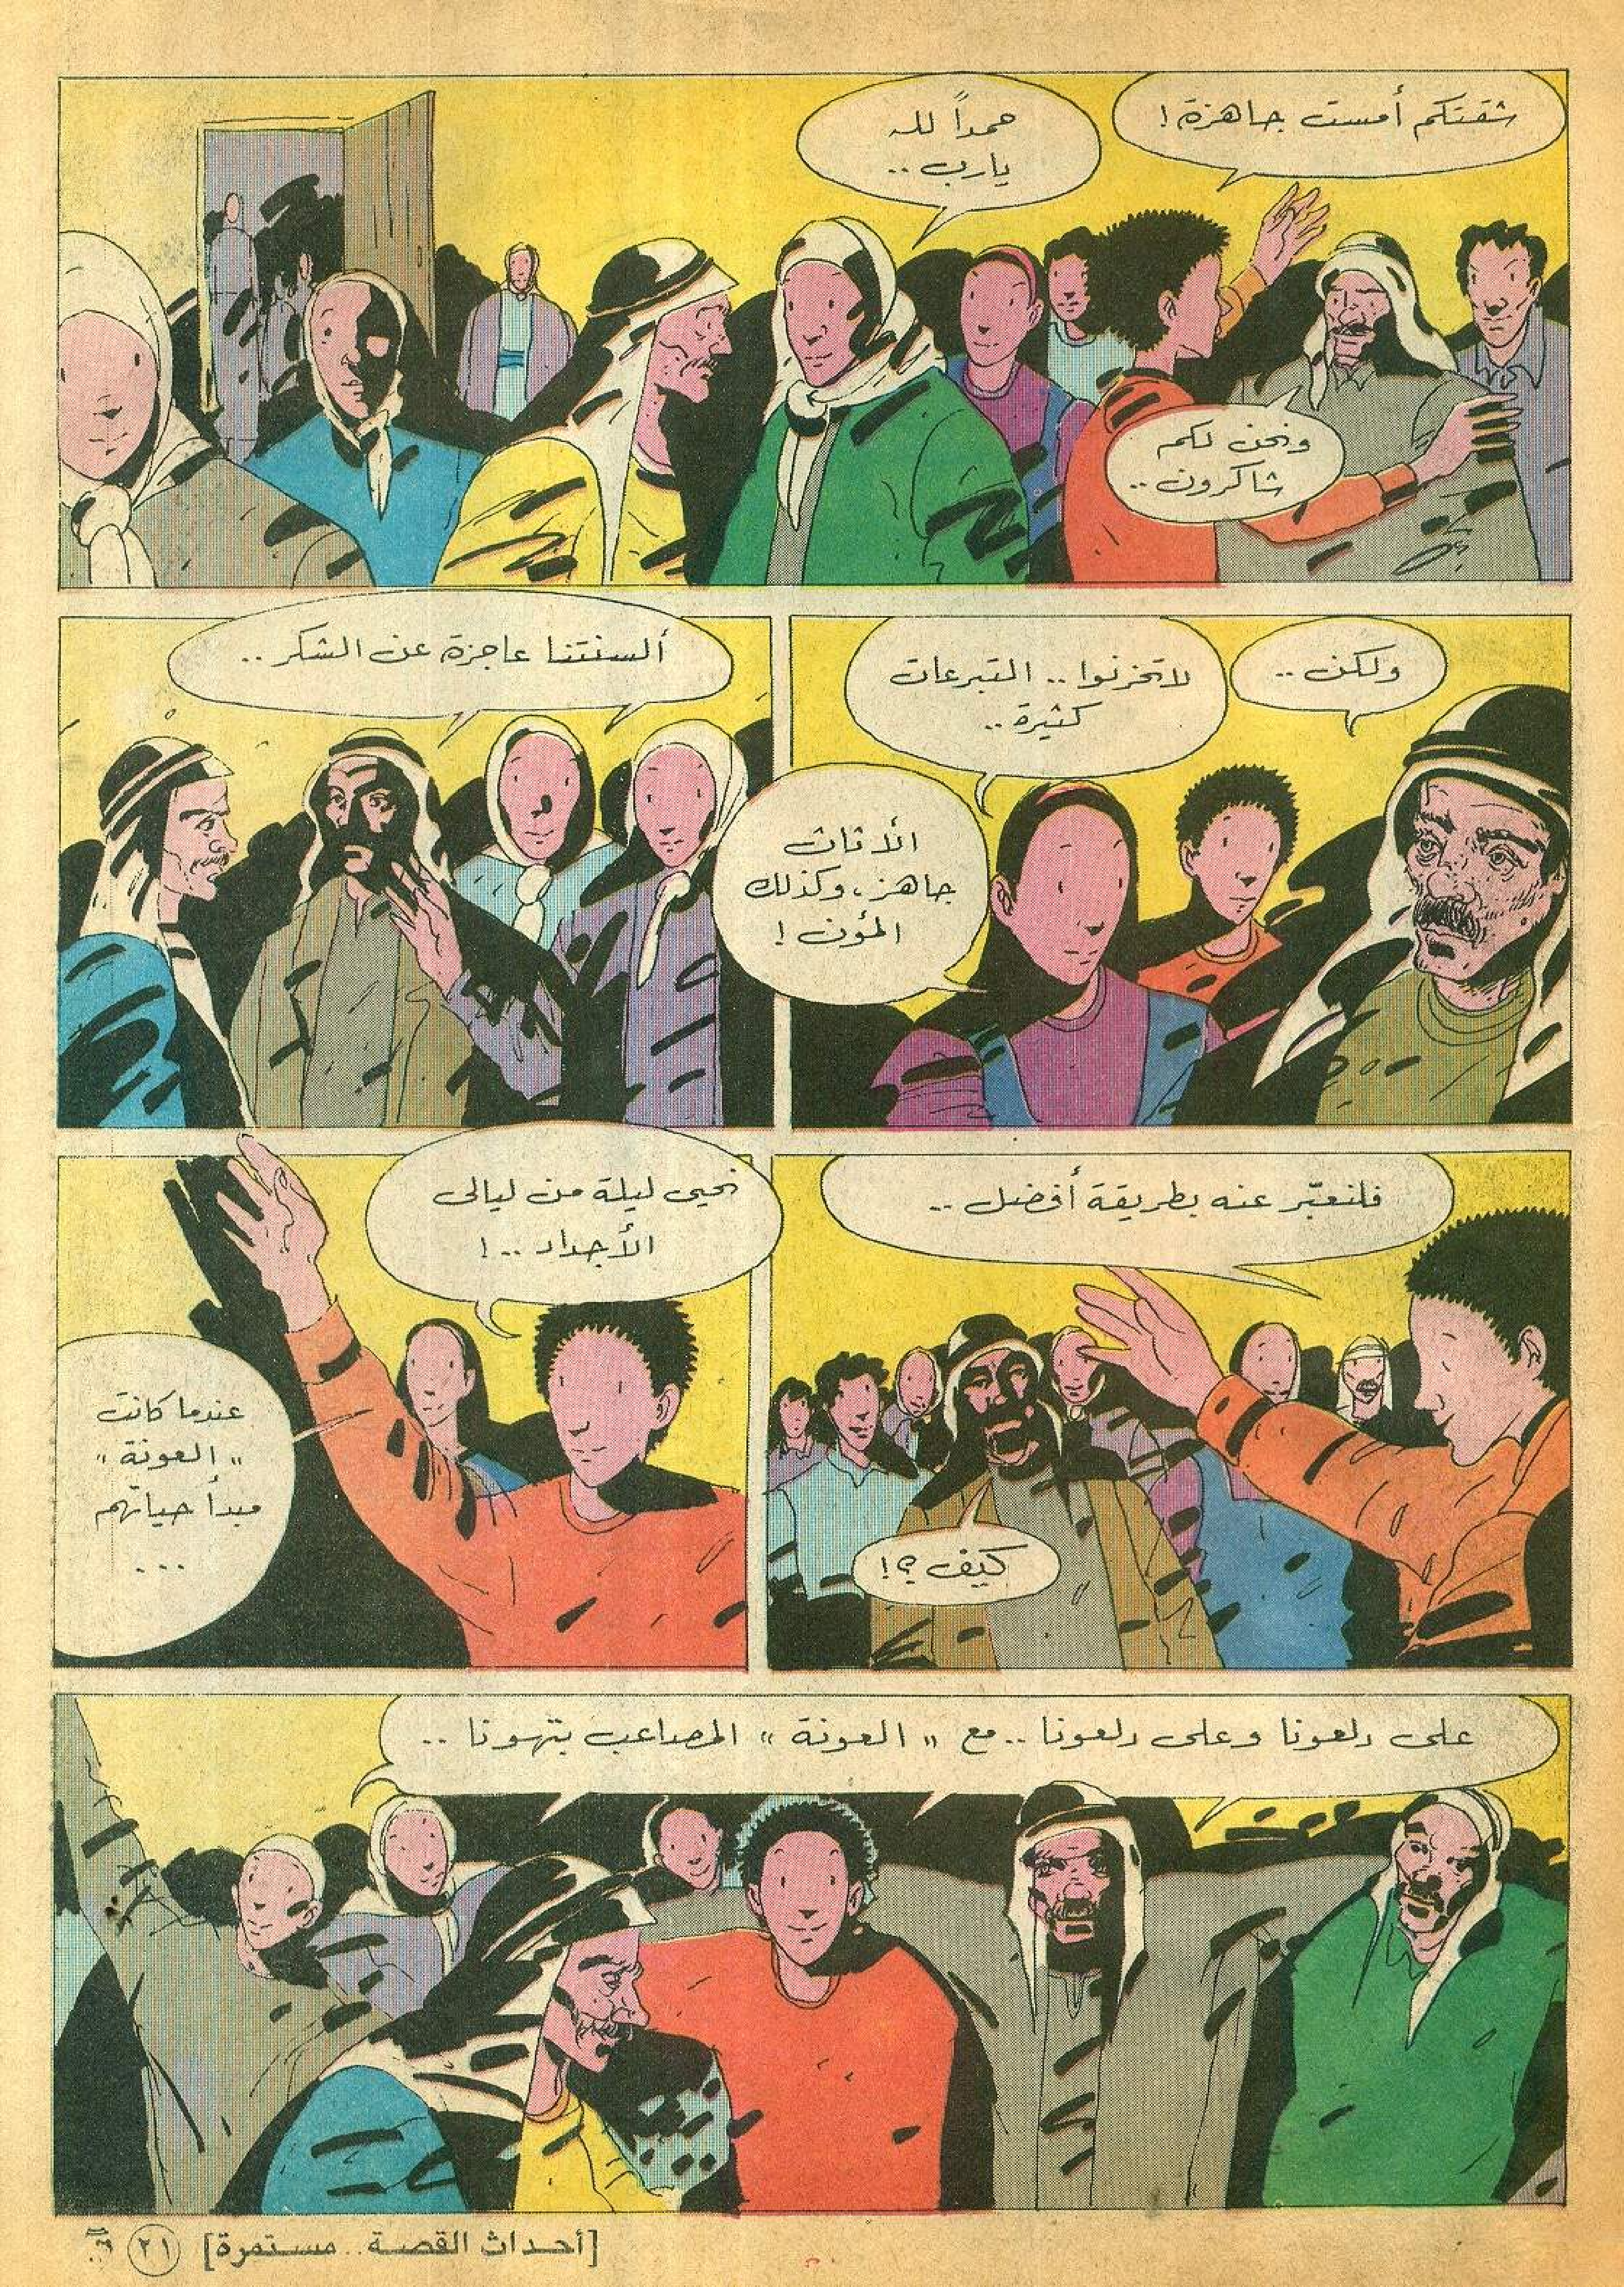 شقتكم أمست جاهزة !
حمداً لله
يارب ..
ونحن لكم
شاكرون ..
ولكن ..
لاتحزنوا .. التبرعات
كثيرة ..
الأثاث
جاهز، وكذلك
المؤن !
ألسنتنا عاجزة عن الشكر ..
فلنعبّر عنه بطريقة أفضل ..
كيف ؟!
نحيي ليلة من ليالي
الأجداد .. !
عندما كانت
" العونة "
مبدأ حياتهم
...
على دلعونا وعلى دلعونا .. مع " العونة " المصاعب بتهونا ..
[أحداث القصة .. مستمرة] ٢١